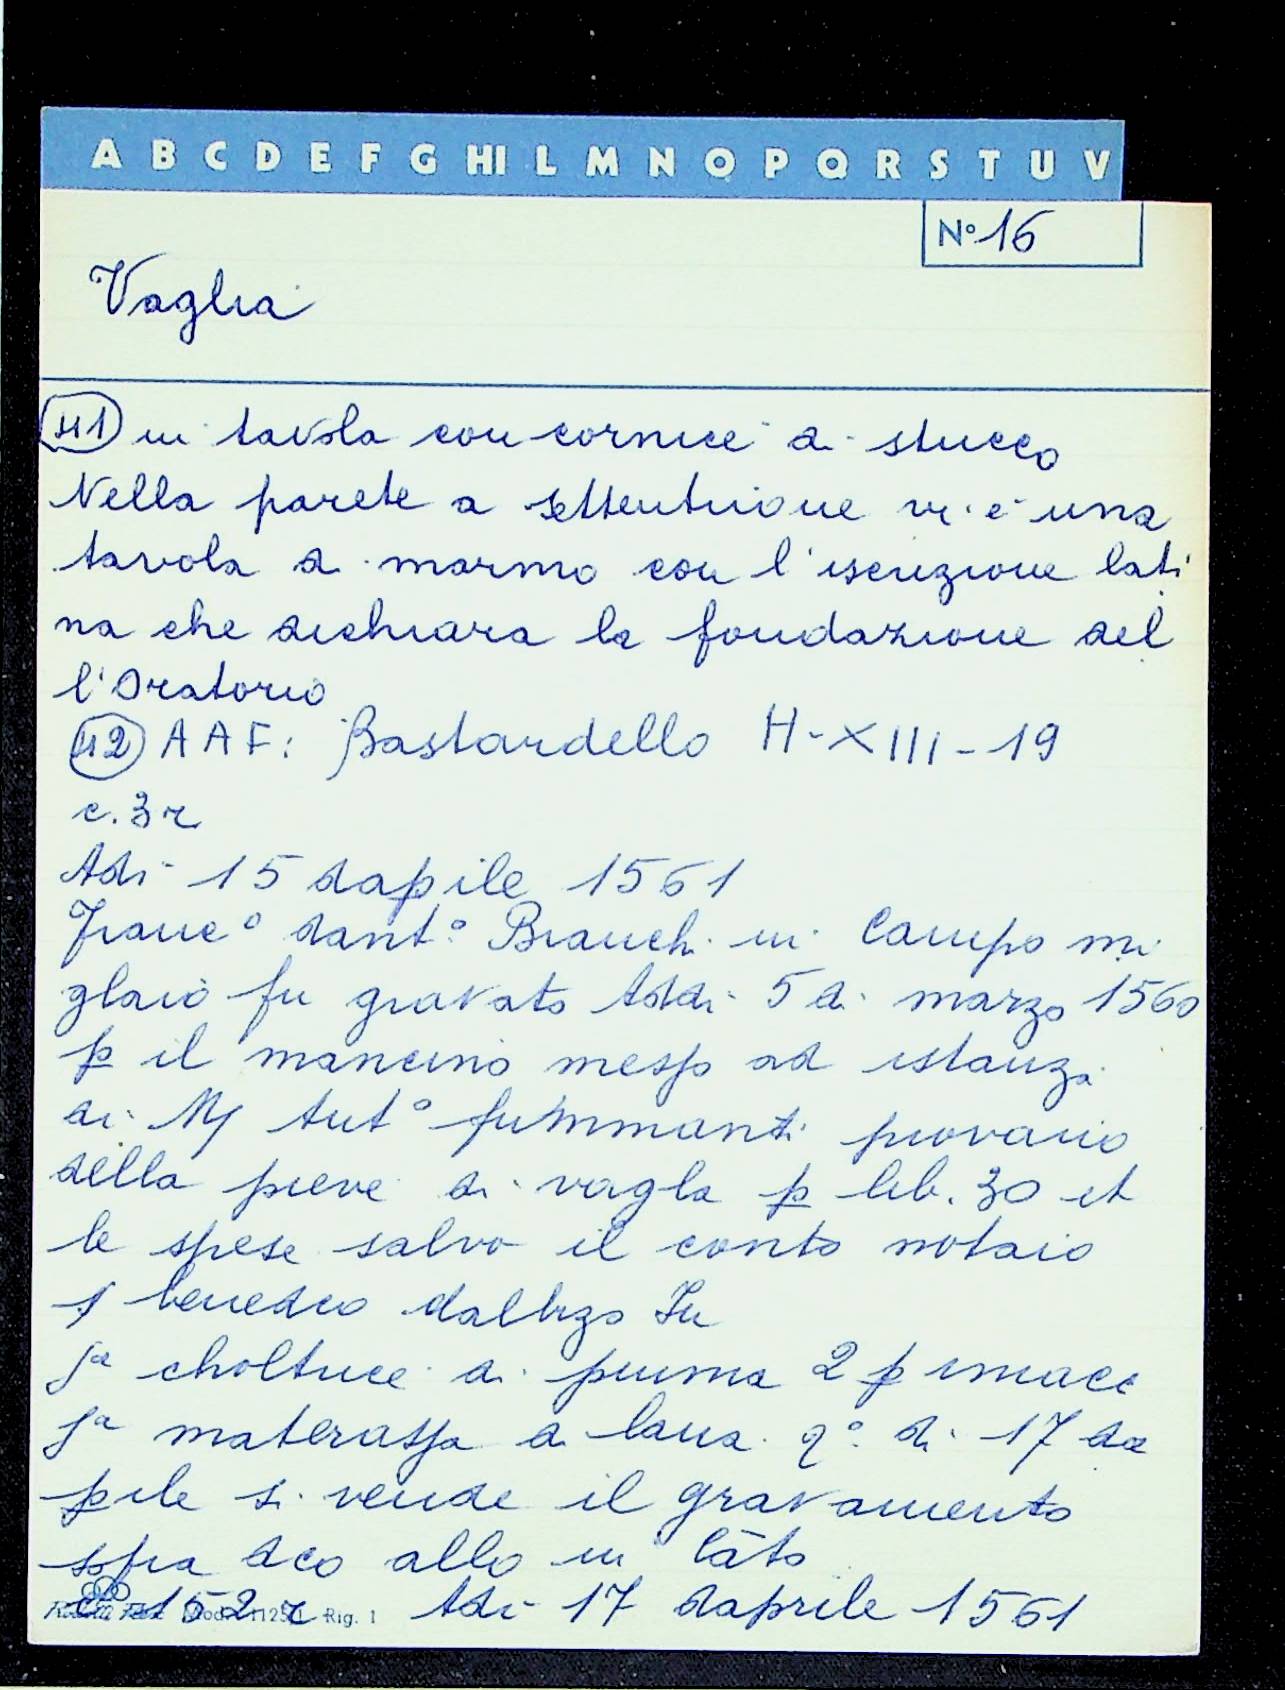 A B C D E F G HI L M N O P Q R S T U V
N° 16
Vaglia
41 in tavola con cornice di stucco
Nella parete a settentrione vi è una
tavola di marmo con l'iscrizione lati
na che dichiara la fondazione del
l'Oratorio
42 A A F: Bastardello H-XIII-19
c. 3r
Adi 15 dapile 1561
Franc° dant° Bianchi in Campo mi
glaio fu gravato Addi 5 di marzo 1560
p il mancino messo ad istanza
di M Ant° piovano
della pieve di vagla p lib. 30 et
le spese salvo il conto notaio
s benedeo dalbizo In
ja choltrice di piuma 2 p imacc
ja materassa di lana q° di 17 da
pile si vende il gravamento
sopra dco allo in cāto
c 152 r Adi 17 daprile 1561
Rig. 1